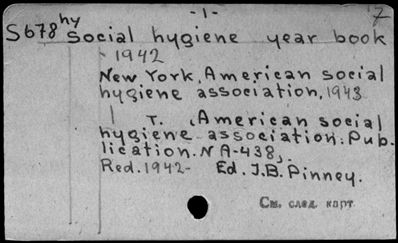 -1-
7
S678hy
Social hygiene year book
1942
New York, American social
hygiene association, 1943
T. (American social
hygiene association. Pub.
lication. N A-438,.
Red. 1942- Ed. J.B. Pinney.
См. след. карт